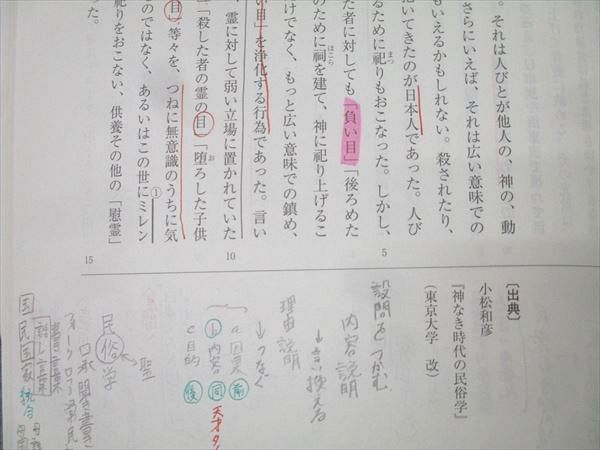 。それは人びとが他人の、神の、動
さらにいえば、それは広い意味での
もいえるかもしれない。殺されたり、
抱いてきたのが日本人であった。人び
るために祀りもおこなった。しかし、
まつ
た者に対しても「負い目」「後ろめた
のために祠を建て、神に祀り上げるこ
ほこら
けでなく、もっと広い意味での鎮め、
い目」を浄化する行為であった。言い
霊に対して弱い立場に置かれていた
「殺した者の霊の目」「堕ろした子供
お
目」等々を、つねに無意識のうちに気
のではなく、あるいはこの世にミレン
①
祀りをおこない、供養その他の「慰霊」
た。
5
10
15
〔出典〕
小松和彦
『神なき時代の民俗学』
(東京大学 改)
設問をつかむ
内容説明
↓言い換える
理由説明
↓つなぐ
a 因果 前
b 内容 同
c 目的 後
天才タ
聖
民俗学
口承
フォークロア
書き言葉
話し言葉
国民国家 統合